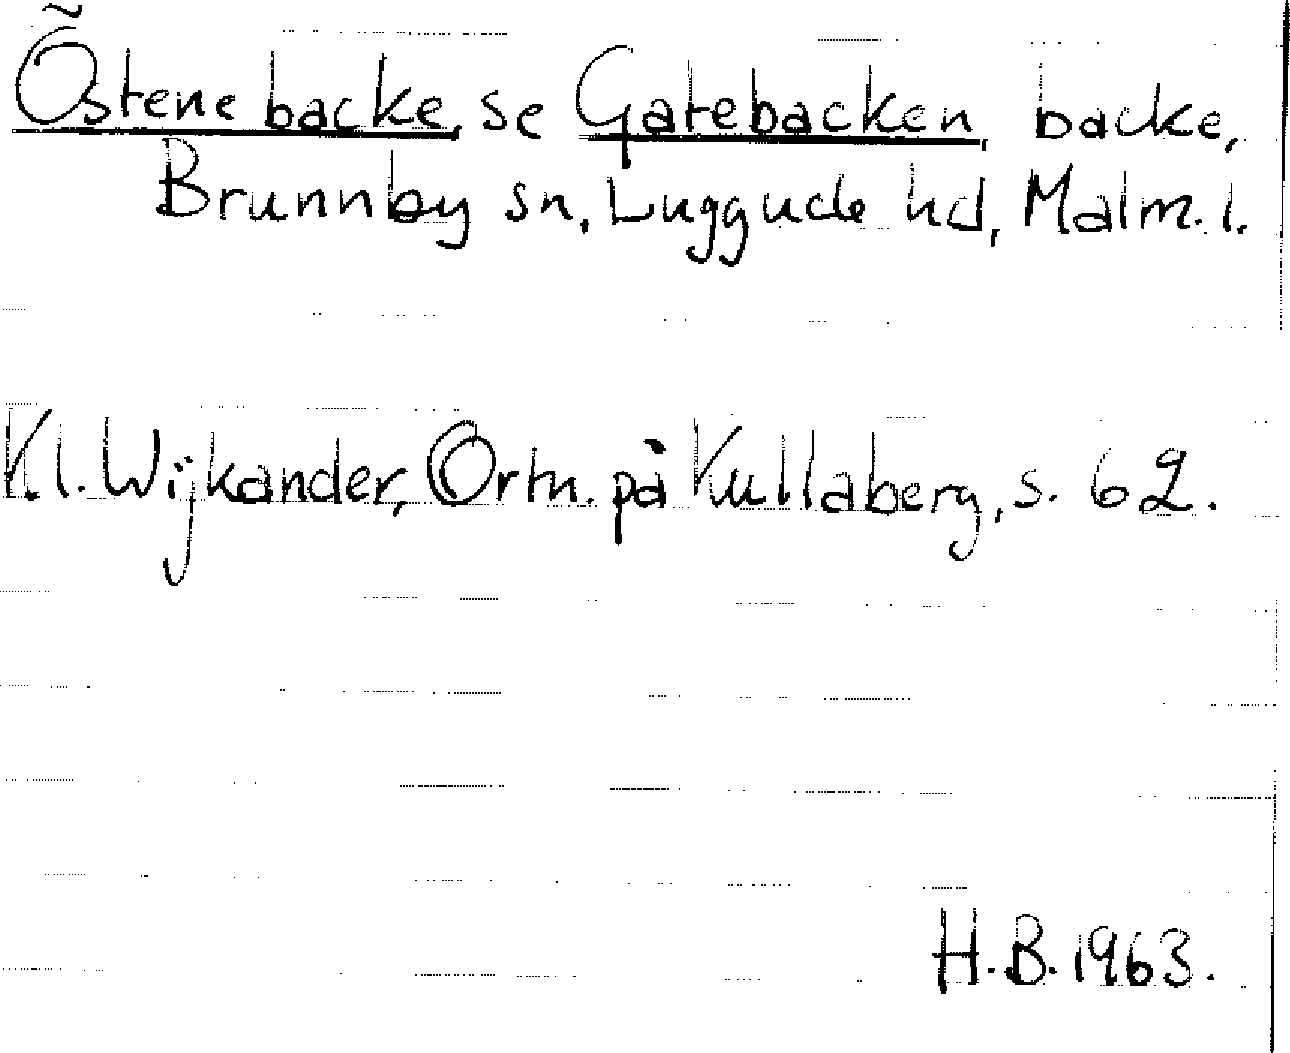 Östene backe, se Gatebacken, backe,
Brunnby sn, Luggude hd, Malm. l.
Kl. Wijkander, Ortn. på Kullaberg, s. 62.
H.B. 1963.